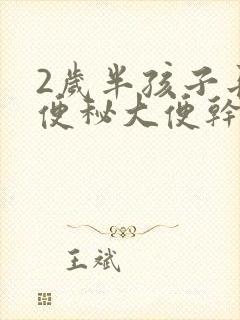 2歲半孩子
便秘大便幹
王斌